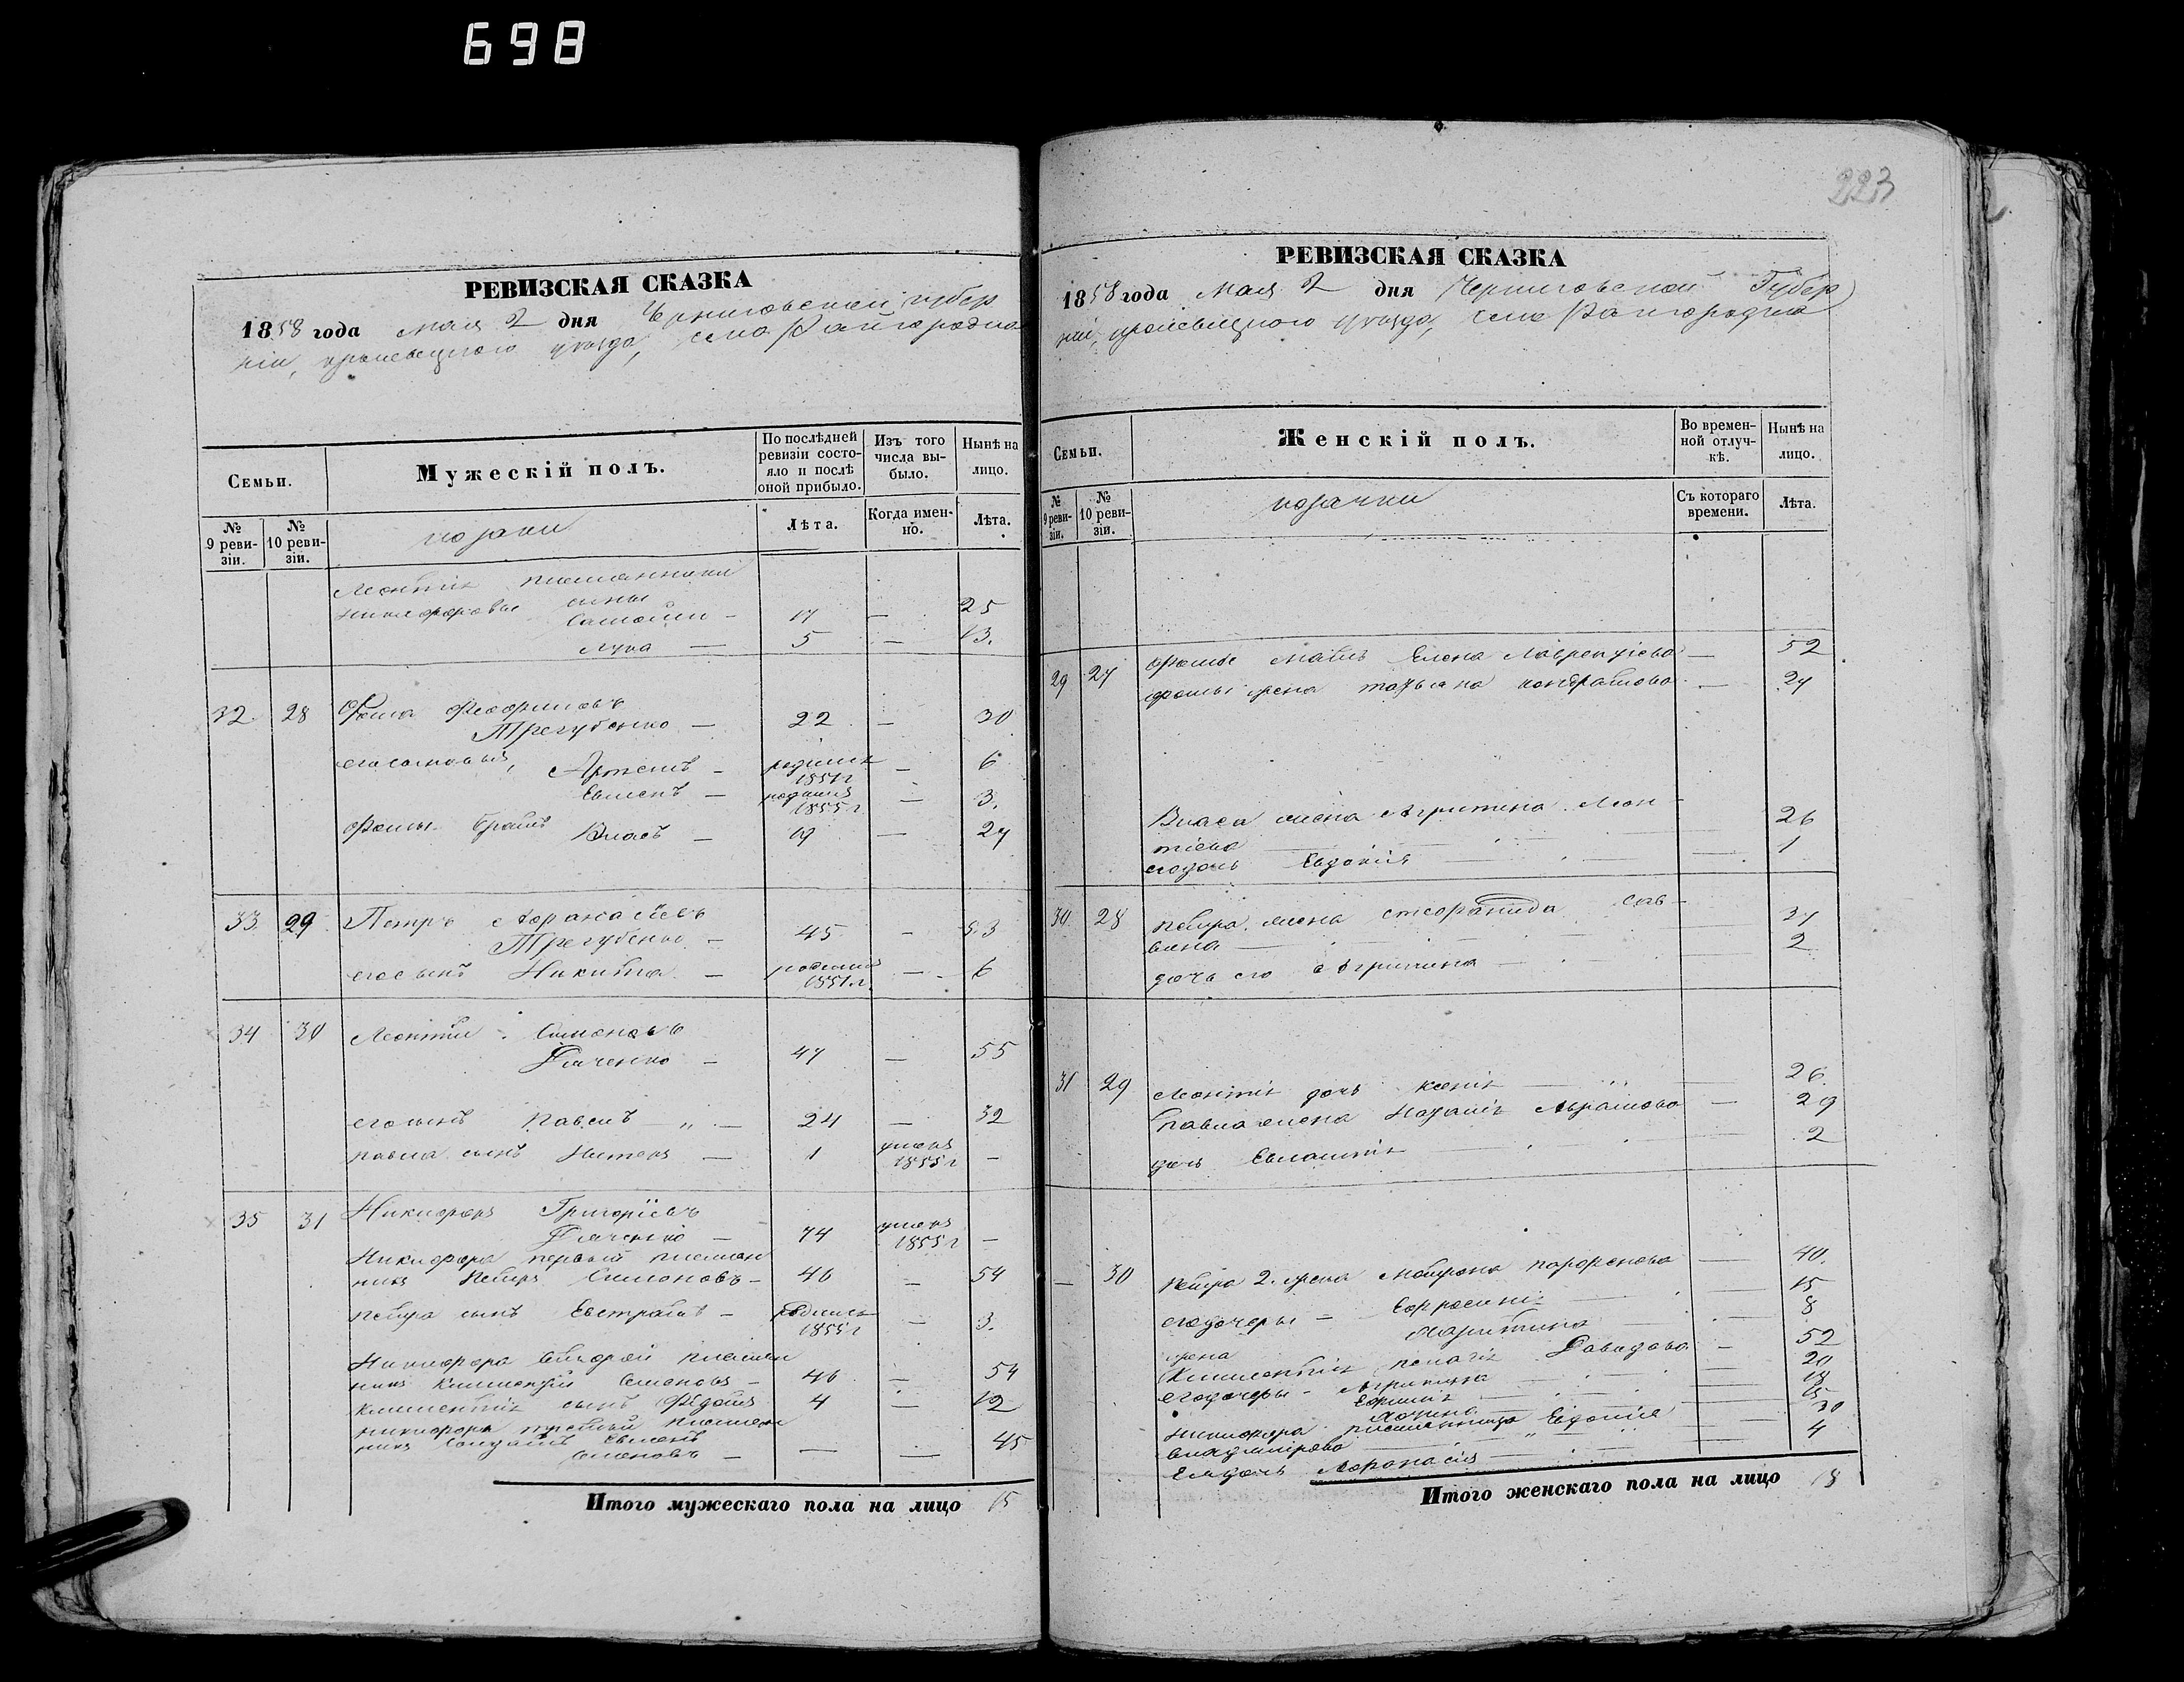 698
РЕВИЗСКАЯ СКАЗКА
1858 года Мая 2 дня Черниговской губер
ніи, кролевецкого уезда, село Райгородка
Семьи.
Мужескій полъ.
По послѣдней ревизіи состояло и послѣ оной прибыло.
Изъ того числа выбыло.
Нынѣ на лицо.
№ 9 ревизіи.
№ 10 ревизіи.
козаки
Лѣта.
Когда именно.
Лѣта.
Леонтія племянники
Никифоровы сыны
Самойли — 17 — 25
Лука — 5 — 13.
32. 28 Фома Феофиловъ
Трегубенко — 22 — 30
его сыновья, Артемъ — родился 1851 г — 6
Евменъ — родился 1855 г — 3.
Фомы братъ Власъ — 19 — 27
33. 29 Петръ Афанасіевъ
Трегубенко — 45 — 53
его сынъ Никита — родился 1851 г. — 6
34 30 Леонтій Симоновъ
Дяченко — 47 — 55
его сынъ Павелъ — 24 — 32
Павла сынъ — 1 умеръ 1855 г —
35 31 Никифоръ Григоріевъ
Дяченко — 74 умеръ 1855 г —
Никифора первый племян
никъ Петръ Симоновъ — 46 — 54
Петра сынъ Евстратъ — родился 1855 г — 3.
Никифора второй племян
никъ Климентій Семеновъ — 46 — 54
Климентія сынъ Федотъ 4 — 12
Никифора третий племян
никъ Евменъ
Семеновъ — — — 45
Итого мужескаго пола на лицо 15
223
РЕВИЗСКАЯ СКАЗКА
1858 года Мая 2 дня Черниговской Губер
ніи, кролевецкого уезда, село Райгородка
Семьи.
Женскій полъ.
Во временной отлучкѣ.
Нынѣ на лицо.
№ 9 ревизіи.
№ 10 ревизіи.
козачки
Съ котораго времени.
Лѣта.
29 27 Фомы мать Елена Лаврентіева — 52
Фомы жена Татьяна Кондратова — 27
Власа жена Агрипина Леон
тіева — 26
его дочь Евдокія — 1
30 28 Петра жена Стефанида Сав
вина — 37
дочь его Агрипина — 2
31 29 Леонтія дочь Ксенія — 26.
Павла жена Наталія Абрамова — 29
дочь Евлампія — 2
— 30 Петра 2. жена Матрона Парфенова — 40.
его дочери — Ефросинія — 15
Харитина — 8
жена
Климентія Пелагія Давидова — 52
его дочери — Агрипина — 20
Ефимія — 18
— 15
Никифора племянница Евдокія
Владимірова — 30
Ея дочь Афанасія — 4
Итого женскаго пола на лицо 18